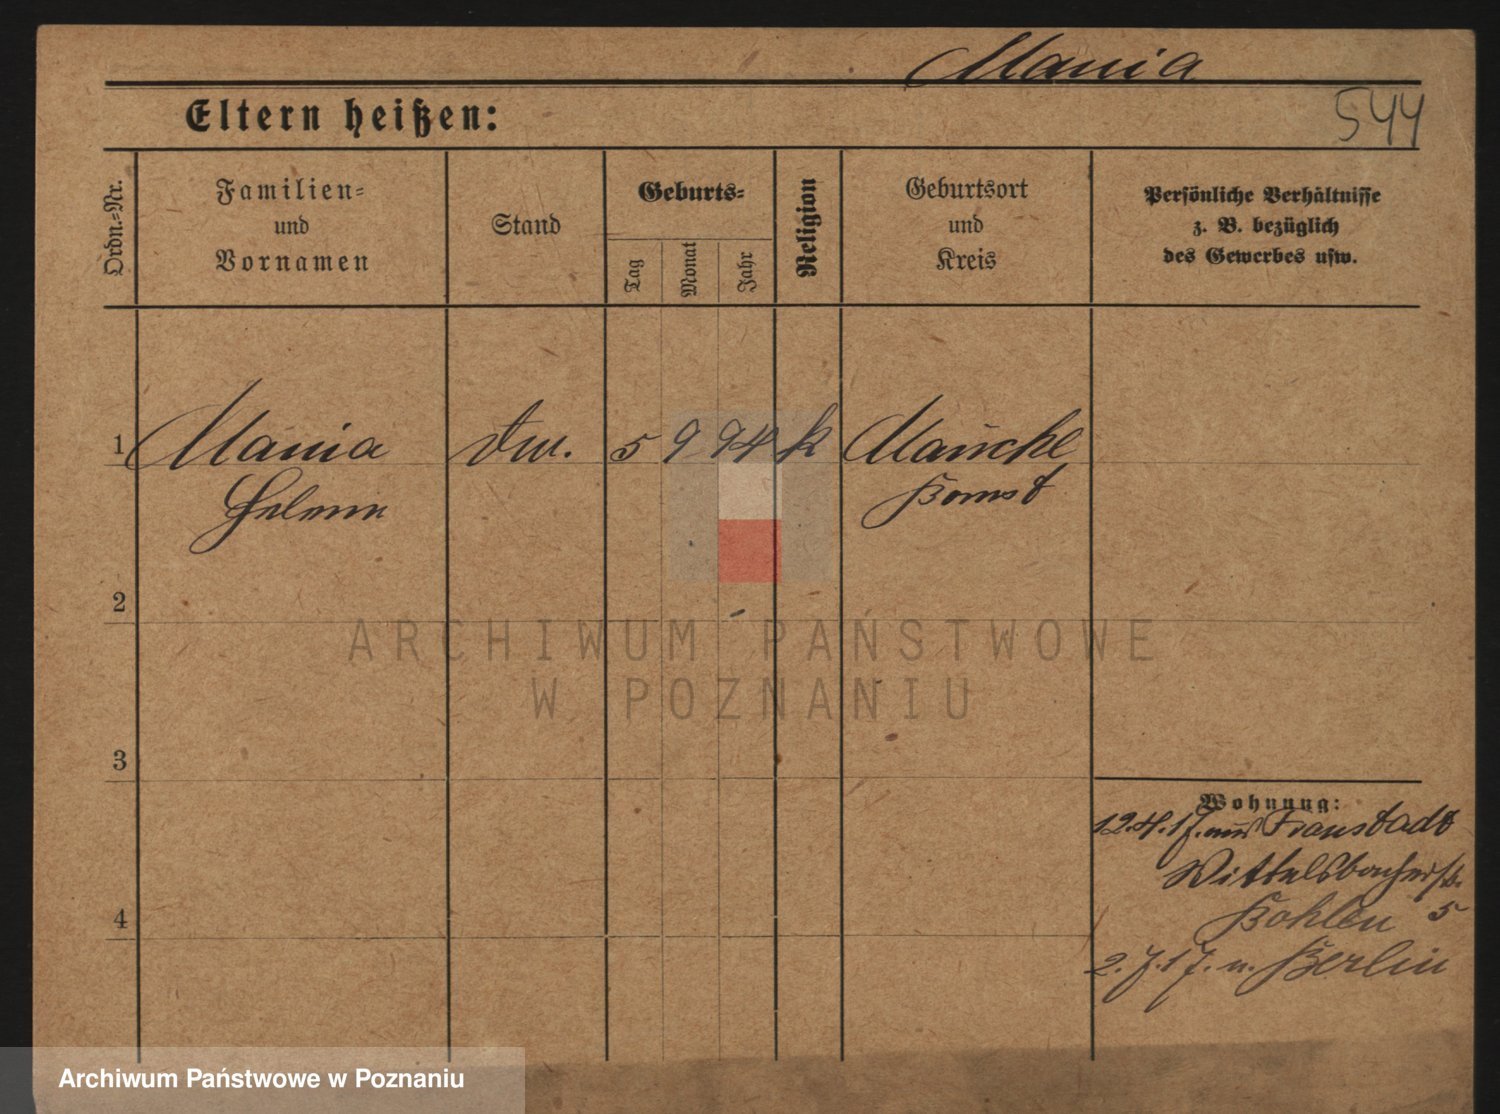 Mania
Eltern heißen:
544
Ordn.=Nr.
Familien=
und
Vornamen
Stand
Geburts=
Tag
Monat
Jahr
Religion
Geburtsort
und
Kreis
Persönliche Verhältnisse
z. B. bezüglich
des Gewerbes usw.
1 Mania 5 9 94 k Mauche
Helene Bomst
2
3
4
Wohnung:
12.4.17. aus Fraustadt
Wittelsbacherstr.
Bohlen 5
2.7.17. n. Berlin
ARCHIWUM PAŃSTWOWE
W POZNANIU
Archiwum Państwowe w Poznaniu